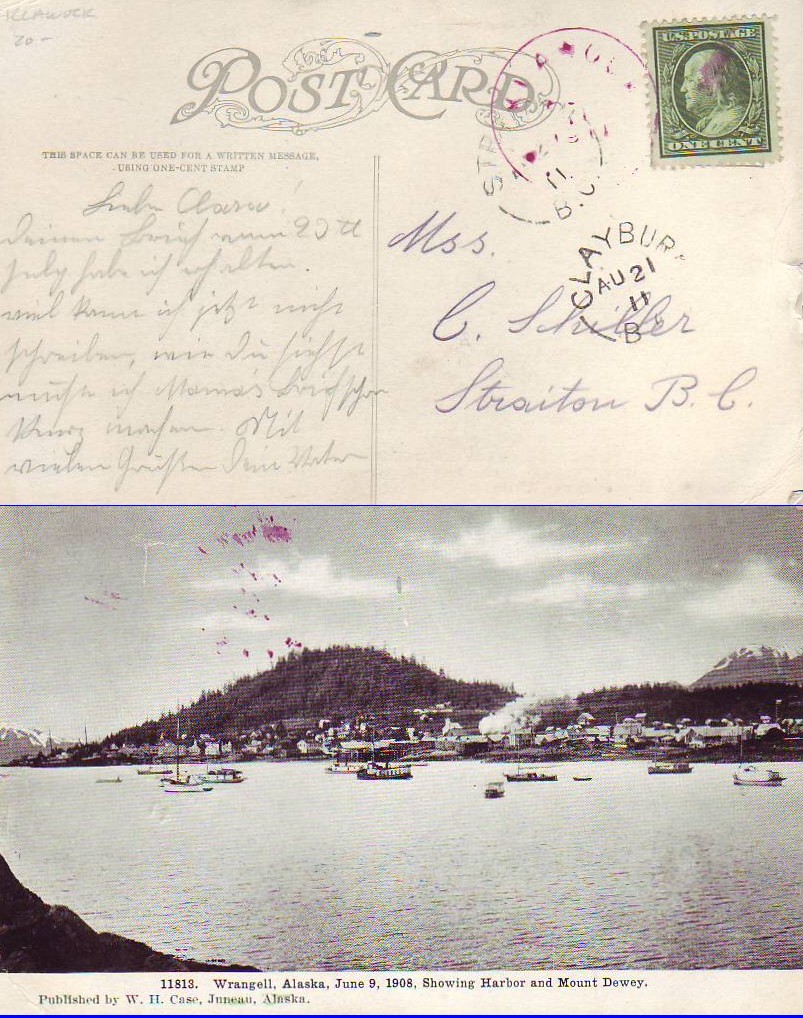 KLAWOCK
20-
POST CARD
U.S. POSTAGE
ONE CENT
THIS SPACE CAN BE USED FOR A WRITTEN MESSAGE,
USING ONE-CENT STAMP
11
B.C.
CLAYBUR
AU 21
11
B
Liebe Clara!
Deinen Brief vom 29tt
July habe ich erhalten.
viel kann ich jetzt nicht
schreiben, wie Du siehst
mußte ich Mama's Brief schon
kurz machen. Mit
vielen Grüßen Dein Vater
Mss.
C. Schibler
Straiton B. C.
11813. Wrangell, Alaska, June 9, 1908, Showing Harbor and Mount Dewey.
Published by W. H. Case, Juneau, Alaska.